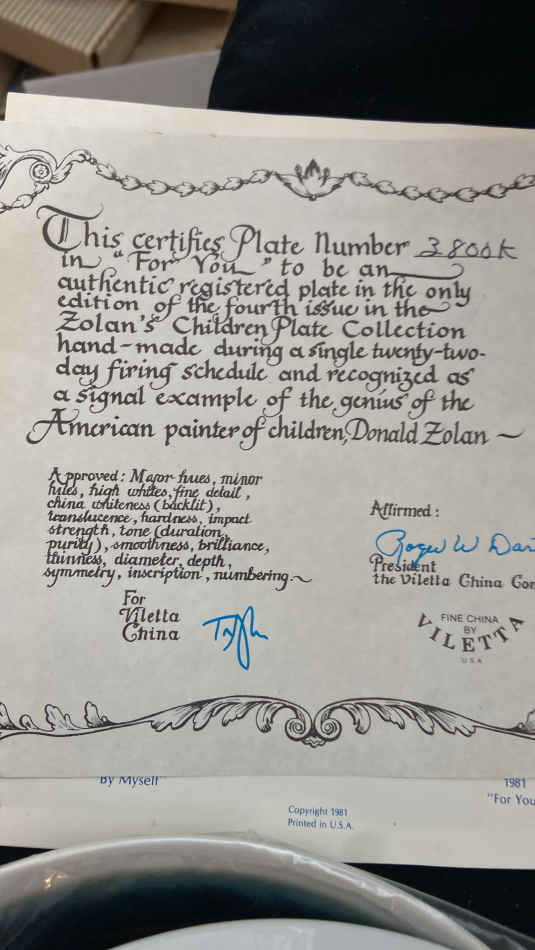 This certifies Plate Number 3800K
in "For You" to be an
authentic registered plate in the only
edition of the fourth issue in the
Zolan's Children Plate Collection
hand-made during a single twenty-two-
day firing schedule and recognized as
a signal example of the genius of the
American painter of children, Donald Zolan
Approved: Major hues, minor
hues, high whites, fine detail,
china whiteness (backlit),
translucence, hardness, impact
strength, tone (duration,
purity), smoothness, brilliance,
thinness, diameter, depth,
symmetry, inscription, numbering.
For
Viletta
China
Affirmed:
Roger W
President
the Viletta China
FINE CHINA
BY
VILETTA
USA
By Myself
1981
"For You
Copyright 1981
Printed in U.S.A.